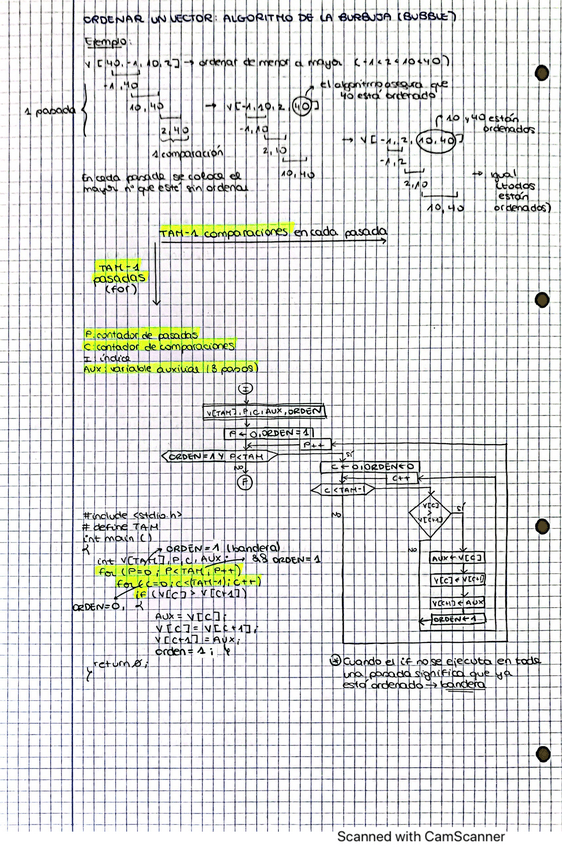 ORDENAR UN VECTOR: ALGORITMO DE LA BURBUJA (BUBBLE)
Ejemplo:
V [40, -1, 10, 2] → ordenar de menor a mayor (-1<2<10<40)
1 pasada
-1, 40
10, 40
2, 40
1 comparación
→ V[-1, 10, 2, 40]
el algoritmo asegura que
40 está ordenado
-1, 10
2, 10
10, 40
→ V[-1, 2, 10, 40]
10 y 40 están
ordenados
-1, 2
2, 10
10, 40
→ igual
(todos
están
ordenados)
En cada pasada se coloca el
mayor nº que esté sin ordenar
TAM-1 comparaciones en cada pasada
TAM-1
pasadas
(for)
P: contador de pasadas
C: contador de comparaciones
I: índice
AUX: variable auxiliar (3 pasos)
I
V[TAM], P, C, AUX, ORDEN
P ← 0, ORDEN = 1
P++
ORDEN=1 Y P<TAM
SÍ
NO
F
C ← 0, ORDEN ← 0
C++
C < TAM-1
NO
V[C]
>
V[C+1]
SÍ
NO
AUX ← V[C]
V[C] ← V[C+1]
V[C+1] ← AUX
ORDEN ← 1
#include <stdio.h>
# define TAM
int main ()
{
→ ORDEN = 1 (bandera)
int V[TAM], P, C, AUX;
→ && ORDEN = 1
for (P=0; P<TAM; P++)
for (C=0; C<(TAM-1); C++)
if (V[C] > V[C+1])
ORDEN=0, {
AUX = V[C];
V[C] = V[C+1];
V[C+1] = AUX;
orden = 1; }
return 0;
}
* Cuando el if no se ejecuta en toda
una pasada significa que ya
está ordenado → bandera
Scanned with CamScanner